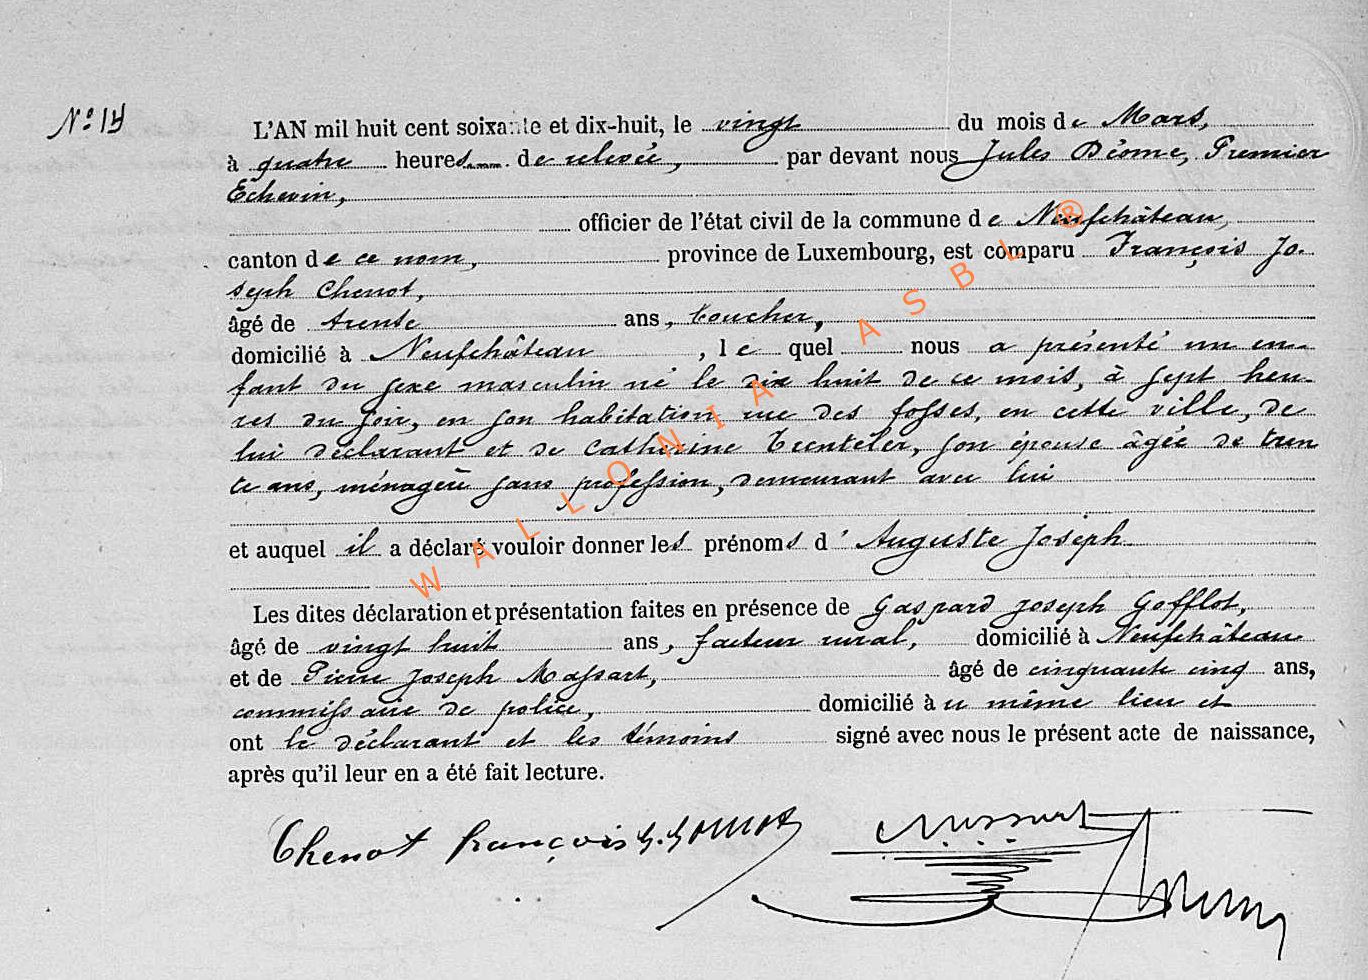 N° 14
L'AN mil huit cent soixante et dix-huit, le vingt du mois de Mars,
à quatre heures de relevée, par devant nous Jules Diome, Premier
Echevin,
officier de l'état civil de la commune de Neufchâteau,
canton de ce nom, province de Luxembourg, est comparu François Jo-
seph Chenot,
âgé de trente ans, boucher,
domicilié à Neufchâteau, le quel nous a présenté un en-
fant du sexe masculin né le dix huit de ce mois, à sept heu-
res du soir, en son habitation rue des fosses, en cette ville, de
lui déclarant et de Catherine Trenteler, son épouse âgée de tren
te ans, ménagère sans profession, demeurant avec lui
et auquel il a déclaré vouloir donner les prénoms d'Auguste Joseph
Les dites déclaration et présentation faites en présence de Gaspard Joseph Gofflot,
âgé de vingt huit ans, facteur rural, domicilié à Neufchâteau
et de Pierre Joseph Massart, âgé de cinquante cinq ans,
commissaire de police, domicilié au même lieu et
ont le déclarant et les témoins signé avec nous le présent acte de naissance,
après qu'il leur en a été fait lecture.
Chenot françois G. Gofflot Massart
WALLONIA ASBL ®